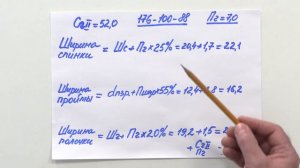 СгII = 52,0  176-100-88  Пг = 7,0
Ширина спинки = Шс + Пг × 25% = 20,4 + 1,7 = 22,1
Ширина проймы = dпр + × 55% = 12,4 + 3,8 = 16,2
Ширина полочки = Шг + Пг × 20% = 19,2 + 1,5 =
+ СгII
Пг